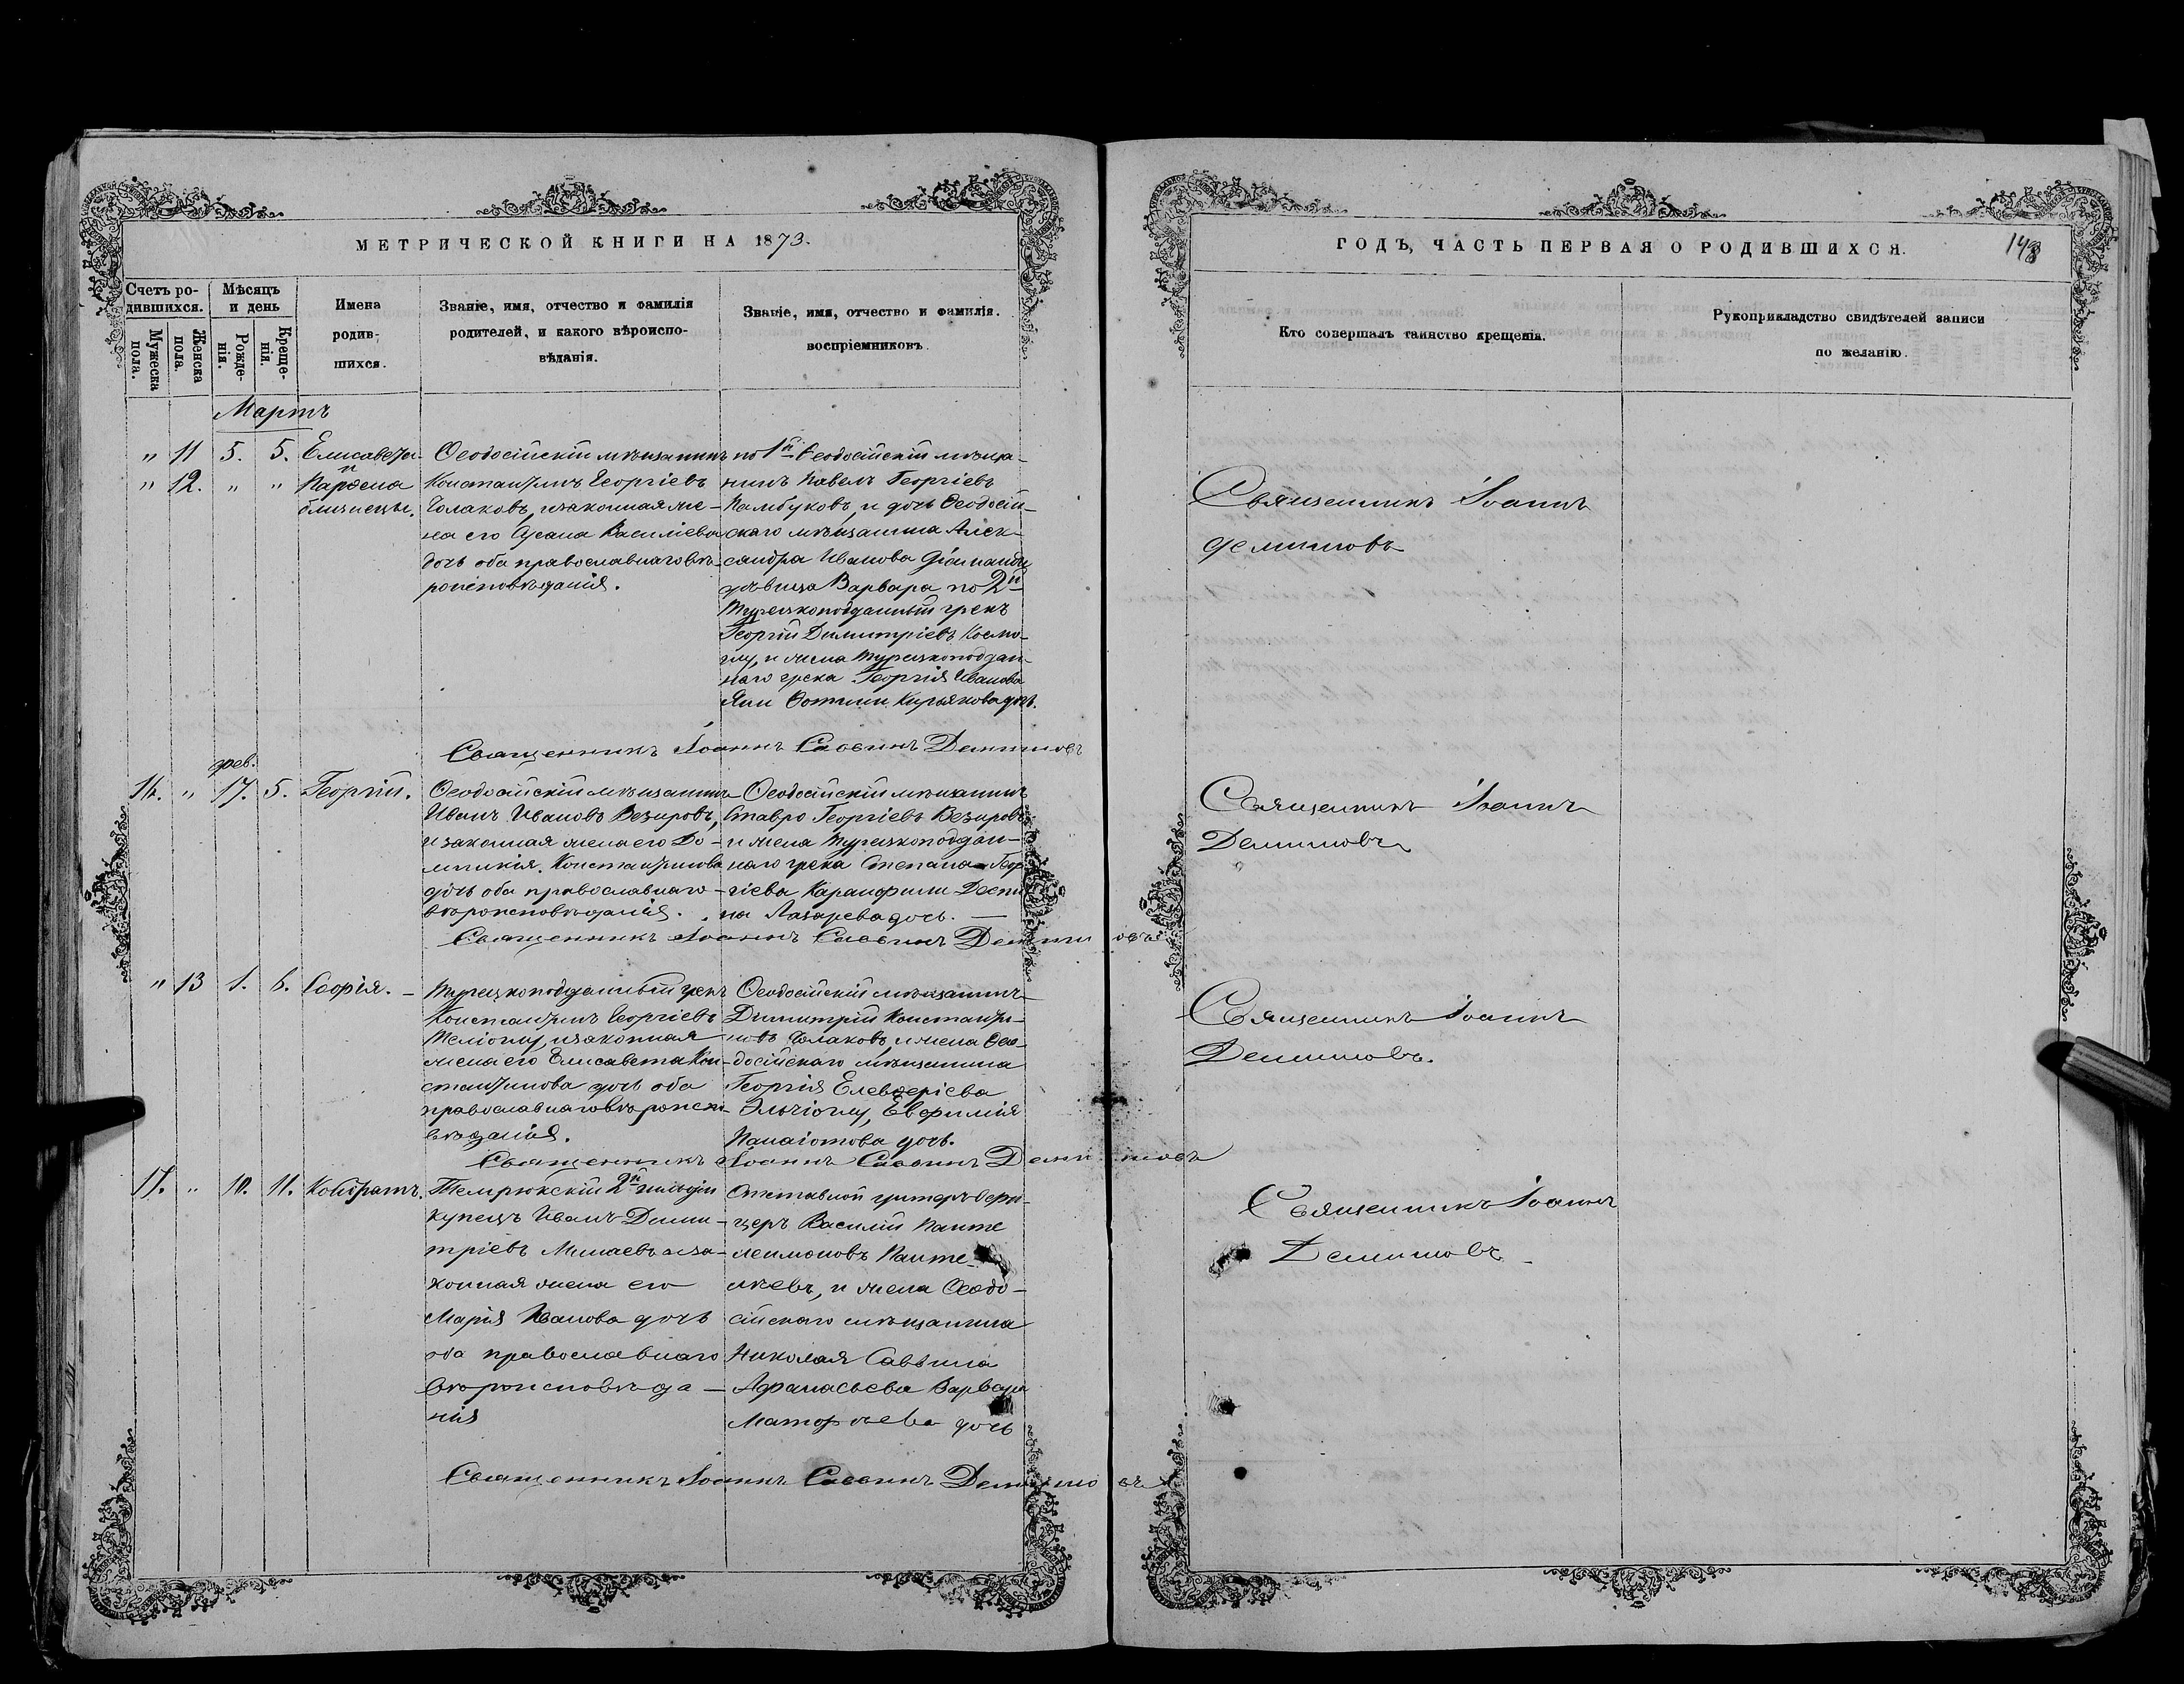 МЕТРИЧЕСКОЙ КНИГИ НА 1873.
Счетъ ро-
дившихся.
Мужеска
пола.
Женска
пола.
Мѣсяцъ
и день
Рожде-
нія.
Креще-
нія.
Имена
родив-
шихся.
Званіе, имя, отчество и фамилія
родителей, и какого вѣроиспо-
вѣданія.
Званіе, имя, отчество и фамилія.
воспріемниковъ.
Мартъ
„ 11 5. 5. Елисавета
и
„ 12. „ „ Парѳена
близнецы.
Ѳеодосійскій мѣщанинъ
Константинъ Георгіевъ
Чолаковъ, и законная же-
на его Сусана Василіева
дочь оба православнаго вѣ-
роисповѣданія.
по 1й Ѳеодосійскій мѣща-
нинъ Павелъ Георгіевъ
Памбуковъ, и дочь Ѳеодосій-
скаго мѣщанина Алек-
сандра Иванова
дѣвица Варвара по 2й
Турецкоподданный грекъ
Георгій Димитріевъ Космо-
глу, и жена Турецкоподдан-
наго грека Георгія Иванова
Яни Фотини Кирьякова дочь.
Священникъ Іоаннъ Саввинъ Демишовъ
фев.
16. „ 17. 5. Георгій.
Ѳеодосійскій мѣщанинъ
Иванъ Ивановъ Везировъ,
и законная жена его До-
мникія Константинова
дочь оба православнаго
вѣроисповѣданія.
Ѳеодосійскій мѣщанинъ
Ставро Георгіевъ Везировъ
и жена Турецкоподдан-
наго грека Степана Геор-
гіева Каранфили Деспи
на Лазарева дочь.
Священникъ Іоаннъ Саввинъ Демишовъ
„ 13 1. 6. Софія.
Турецкоподданный грекъ
Константинъ Георгіевъ
и законная
жена его Елисавета Кон-
стантинова дочь оба
православнаго вѣроиспо-
вѣданія.
Ѳеодосійскій мѣщанинъ
Димитрій Константи-
новъ Чолаковъ, и жена Ѳео-
досійскаго мѣщанина
Георгія Елевѳеріева
Эльчіоглу, Евфимія
Панаіотова дочь.
Священникъ Іоаннъ Саввинъ Демишовъ
17. „ 10. 11. Кодратъ.
Темрюкскій 2й гильдіи
купецъ Иванъ Дими-
тріевъ Минаевъ и за-
конная жена его
Марія Иванова дочь
оба православнаго
вѣроисповѣда-
нія
Отставной унтеръ офи-
церъ Василій Панте
леимоновъ Панте-
лкевъ, и жена Ѳеодо-
сійскаго мѣщанина
Николая Саввина
Афанасьева Варвара
Матофѣева дочь
Священникъ Іоаннъ Саввинъ Демишовъ
ГОДЪ, ЧАСТЬ ПЕРВАЯ О РОДИВШИХСЯ.
Кто совершалъ таинство крещенія.
Рукоприкладство свидѣтелей записи
по желанію.
Священникъ Іоаннъ
Демишовъ
Священникъ Іоаннъ
Демишовъ
Священникъ Іоаннъ
Демишовъ.
Священникъ Іоаннъ
Демишовъ